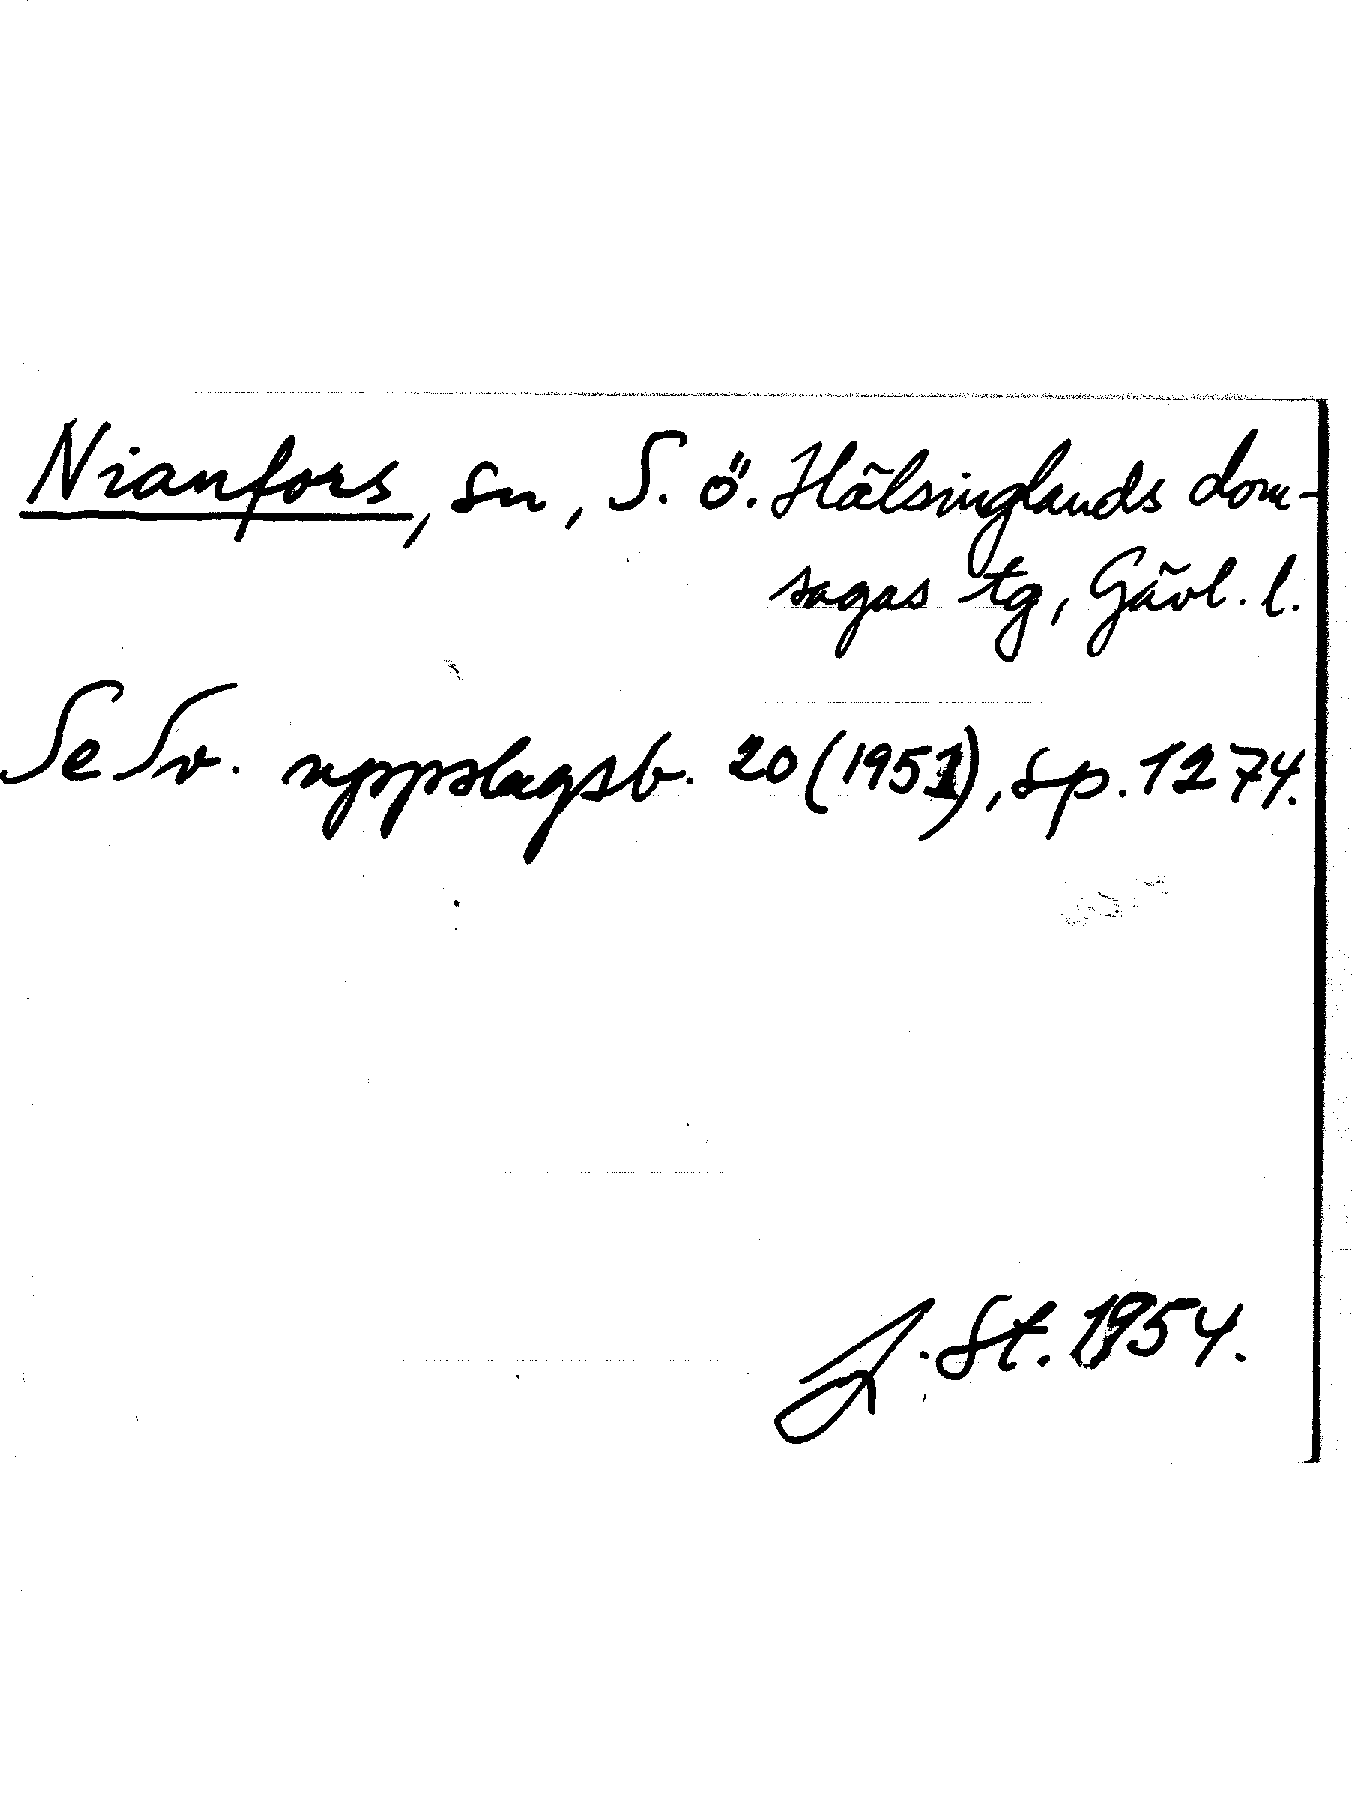 Nianfors, sn, S. ö. Hälsinglands dom-
sagas tg, Gävl. l.
Se Sv. uppslagsb. 20 (1951), sp. 1274.
J. St. 1954.